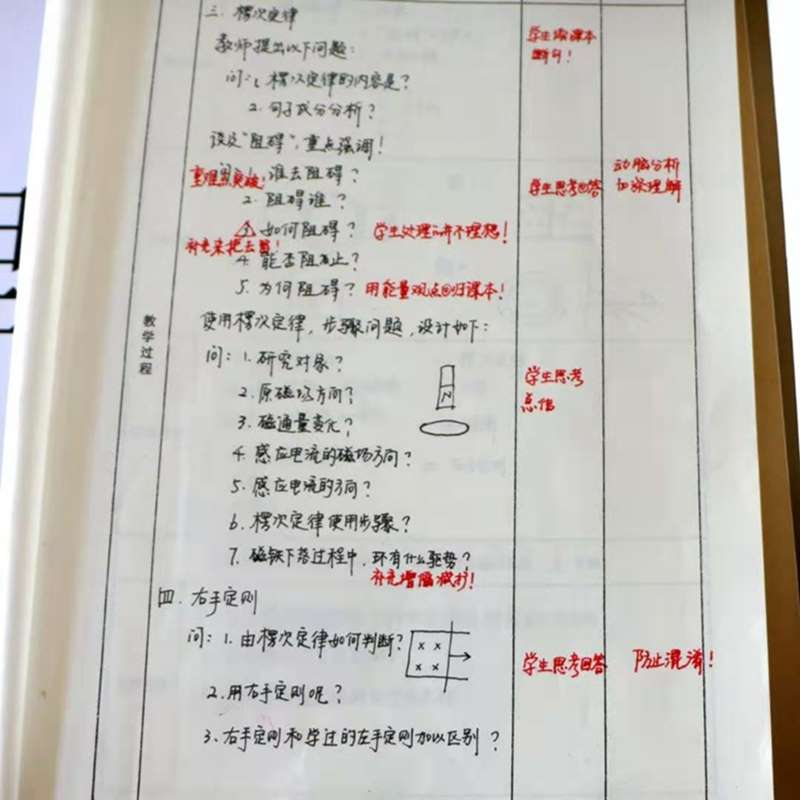 三. 楞次定律
教师提出以下问题:
学生读课本
断句!
问: 1. 楞次定律的内容是?
2. 句子成分分析?
谈及"阻碍",重点强调!
重难点突破!
1. 谁去阻碍?
2. 阻碍谁?
学生思考回答
动脑分析
加深理解
3. 如何阻碍? 学生处理的并不理想!
补充来拒去留!
4. 能否阻止?
5. 为何阻碍? 用能量观点回归课本!
教学过程
使用楞次定律, 步骤问题, 设计如下:
问: 1. 研究对象?
N
学生思考
总结
2. 原磁场方向?
3. 磁通量变化?
4. 感应电流的磁场方向?
5. 感应电流的方向?
6. 楞次定律使用步骤?
7. 磁铁下落过程中, 环有什么趋势?
补充增缩减扩!
四. 右手定则
问: 1. 由楞次定律如何判断?
x x
x x
学生思考回答
防止混淆!
2. 用右手定则呢?
3. 右手定则和学过的左手定则加以区别?